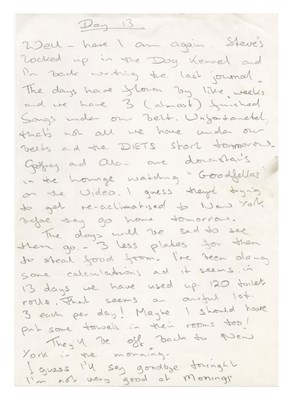 Day 13
Well - here I am again Steve's
locked up in the Dog Kennel and
I'm back writing the last journal.
The days have flown by like weeks
and we have 3 (almost) finished
Songs under our belt. Unfortunately,
that's not all we have under our
belts and the DIETS start tomorrow.
Geoffrey and Alan are downstairs
in the lounge watching "Goodfellas"
on the Video. I guess they're trying
to get re-acclimatised to New York
before they go home tomorrow.
The days will be sad to see
them go - 3 less plates for them
to steal food from. I've been doing
some calculations and it seems in
13 days we have used up 120 toilet
rolls. That seems an awful lot.
3 each per day! Maybe I should have
put some towels in their rooms too!
They'll be off back to New
York in the morning.
I guess I'll say goodbye tonight
I'm not very good at Mornings